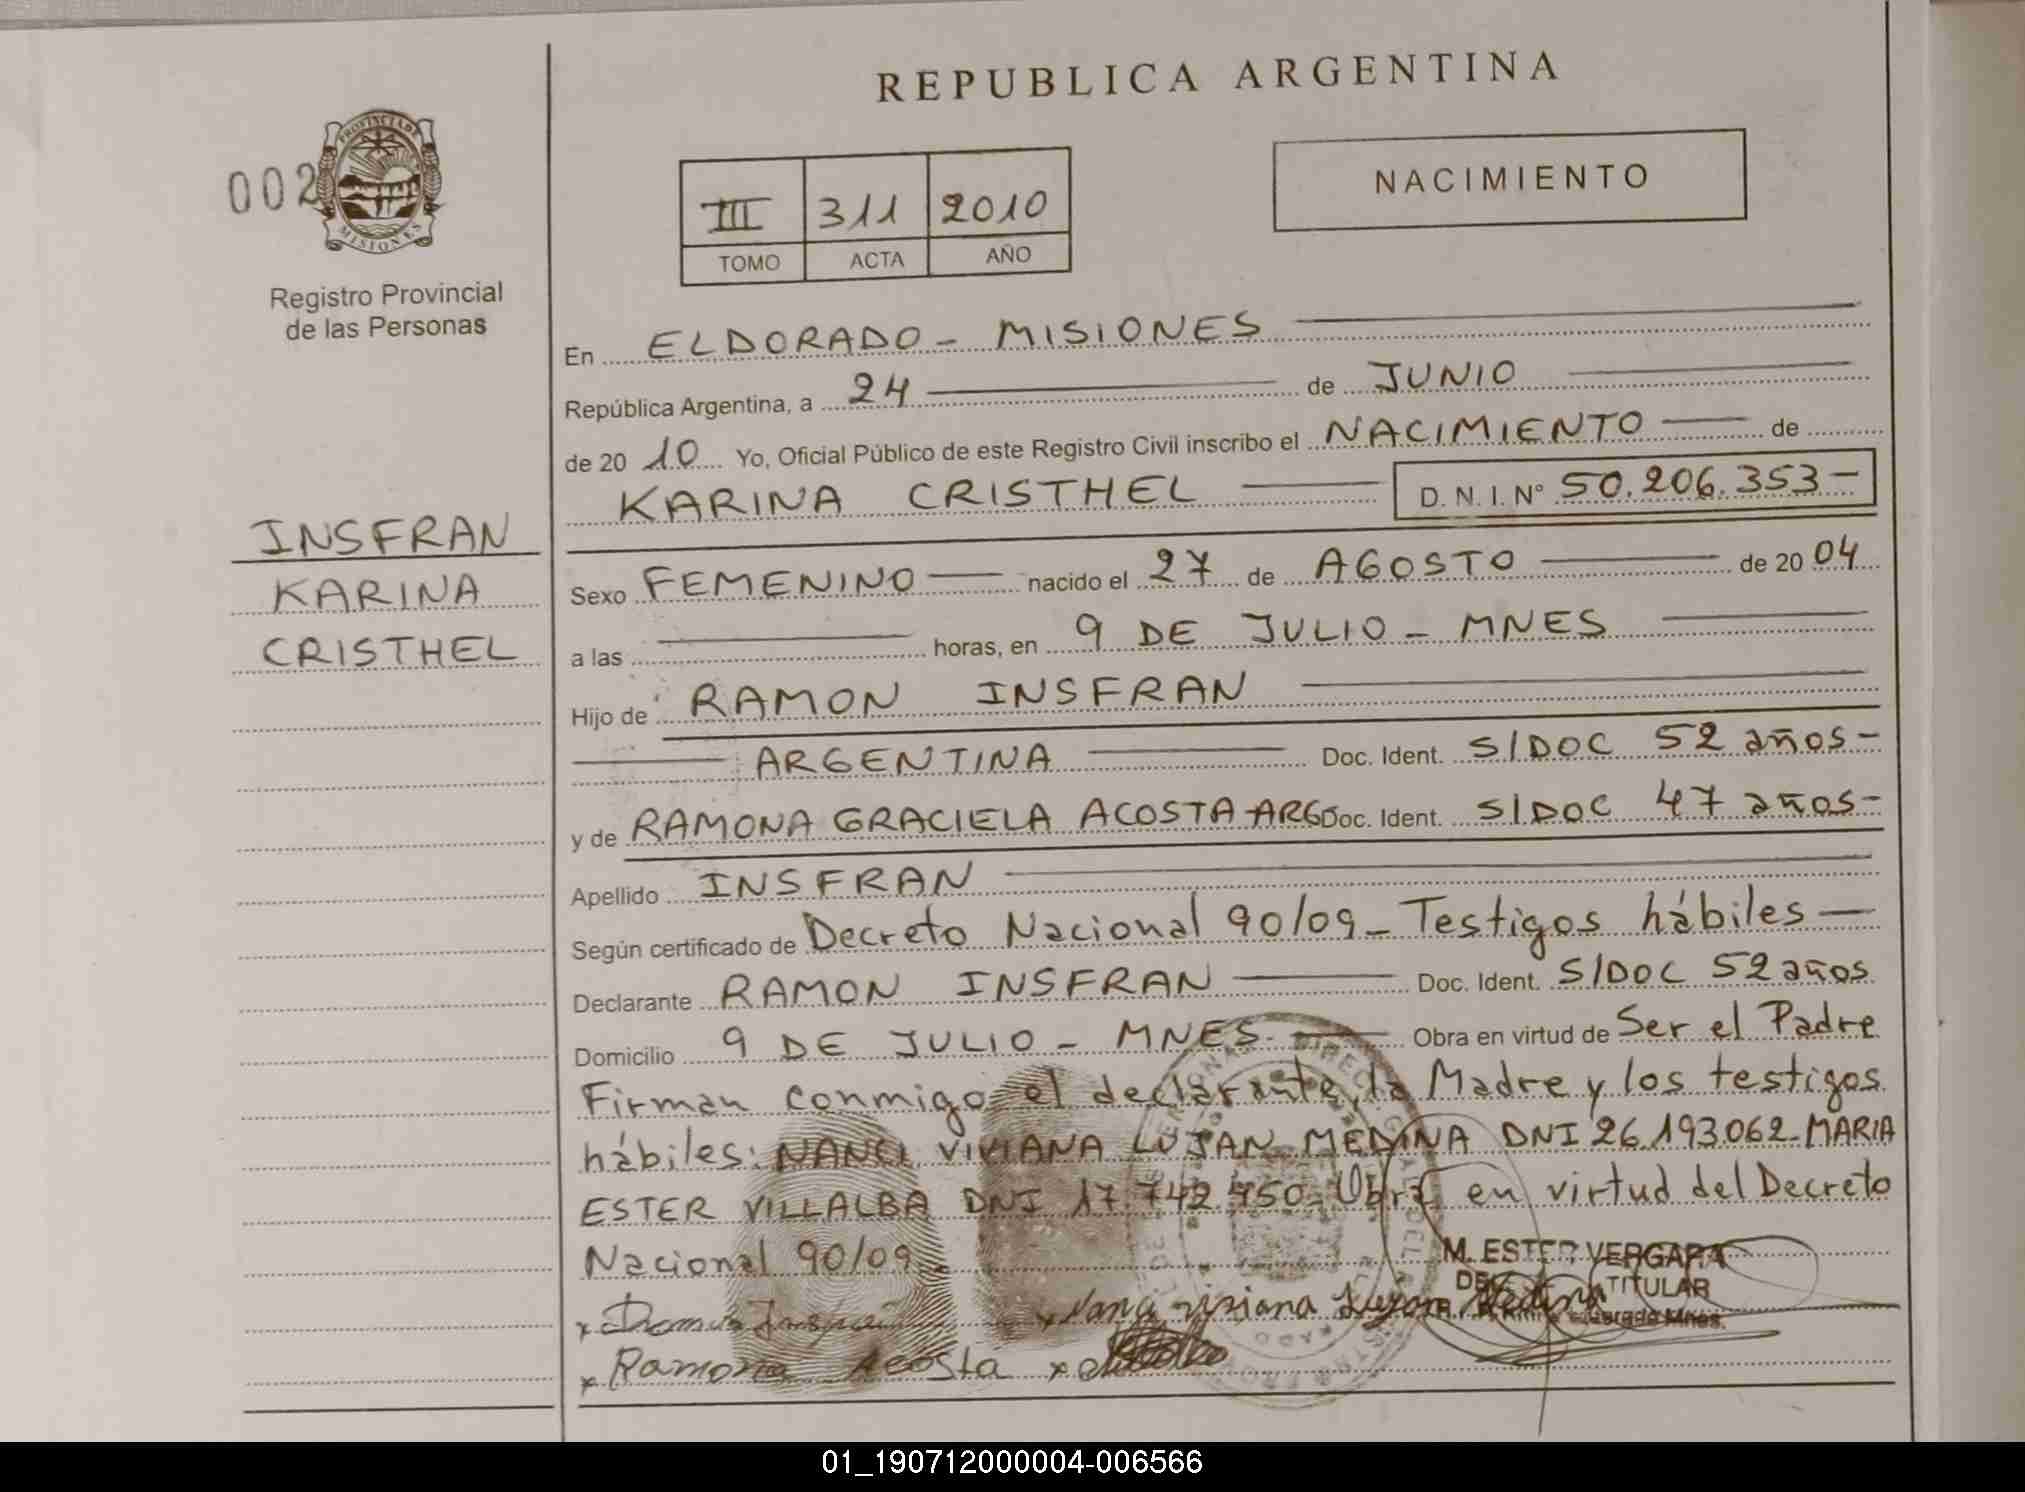 REPUBLICA ARGENTINA
002
PROVINCIA DE
MISIONES
Registro Provincial
de las Personas
III 311 2010
TOMO ACTA AÑO
NACIMIENTO
INSFRAN
KARINA
CRISTHEL
En ELDORADO - MISIONES
República Argentina, a 24 de JUNIO
de 2010 Yo, Oficial Público de este Registro Civil inscribo el NACIMIENTO de
KARINA CRISTHEL D. N. I. Nº 50.206.353-
Sexo FEMENINO nacido el 27 de AGOSTO de 2004
a las horas, en 9 DE JULIO - MNES
Hijo de RAMON INSFRAN
ARGENTINA Doc. Ident. S/DOC 52 años-
y de RAMONA GRACIELA ACOSTA-ARG Doc. Ident. S/DOC 47 años-
Apellido INSFRAN
Según certificado de Decreto Nacional 90/09 - Testigos hábiles
Declarante RAMON INSFRAN Doc. Ident. S/DOC 52 años
Domicilio 9 DE JULIO - MNES Obra en virtud de Ser el Padre
Firman conmigo el declarante, la Madre y los testigos
hábiles: NANCI VIVIANA LUJAN MEDINA DNI 26.193.062-MARIA
ESTER VILLALBA DNI 17.742.450 - Obra en virtud del Decreto
Nacional 90/09 -
M. ESTER VERGARA
TITULAR
x Ramona Acosta x
01_190712000004-006566